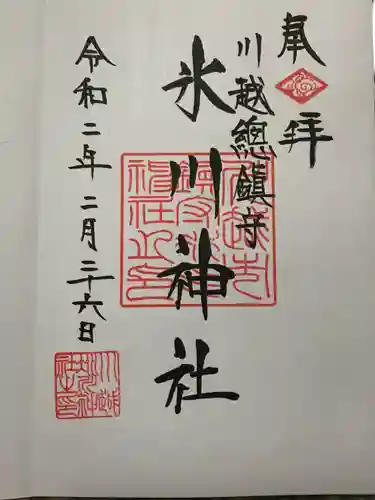 奉拝
川越總鎮守
氷川神社
令和二年二月二十六日